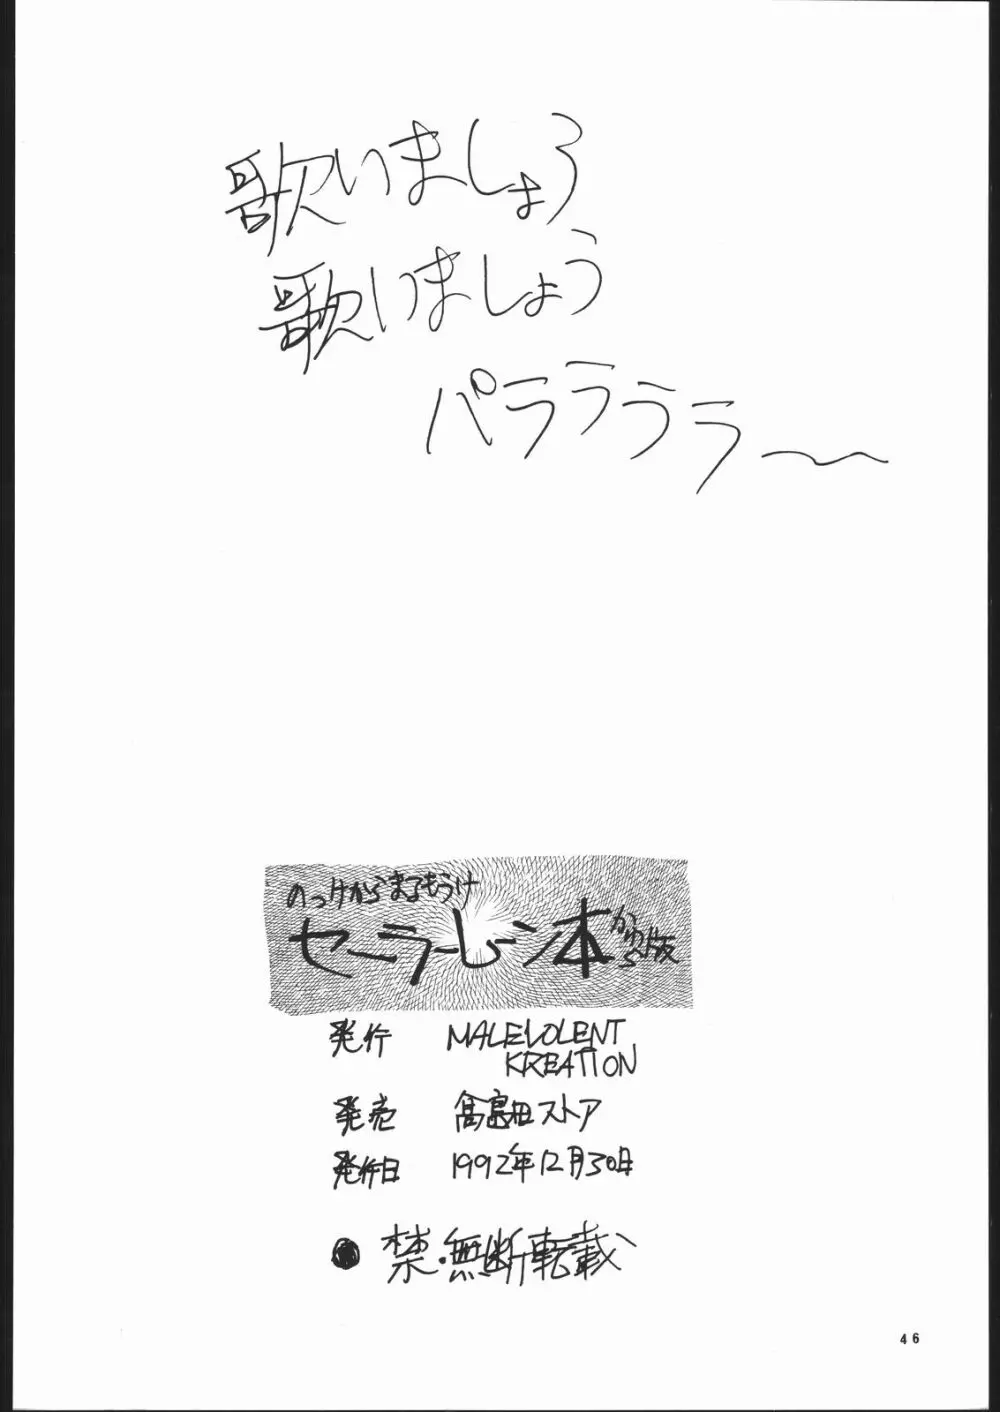 歌いましょう
歌いましょう
パララララ〜
のっけからまるもうけ
セーラームーン本
かゆら版
発行 MALEVOLENT
KREATION
発売 高島田ストア
発行日 1992年12月30日
●禁・無断転載
46